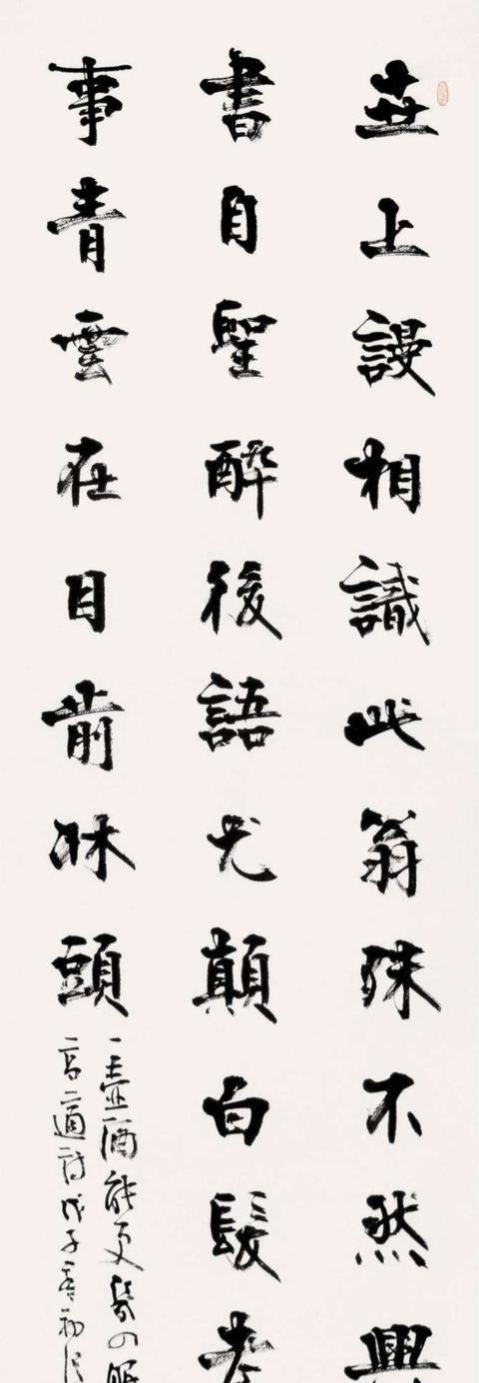 世上謾相識此翁殊不然興
書自聖醉後語尤顛白髮老
事青雲在目前牀頭
一壺酒能更幾回眠
高適詩戊子春初